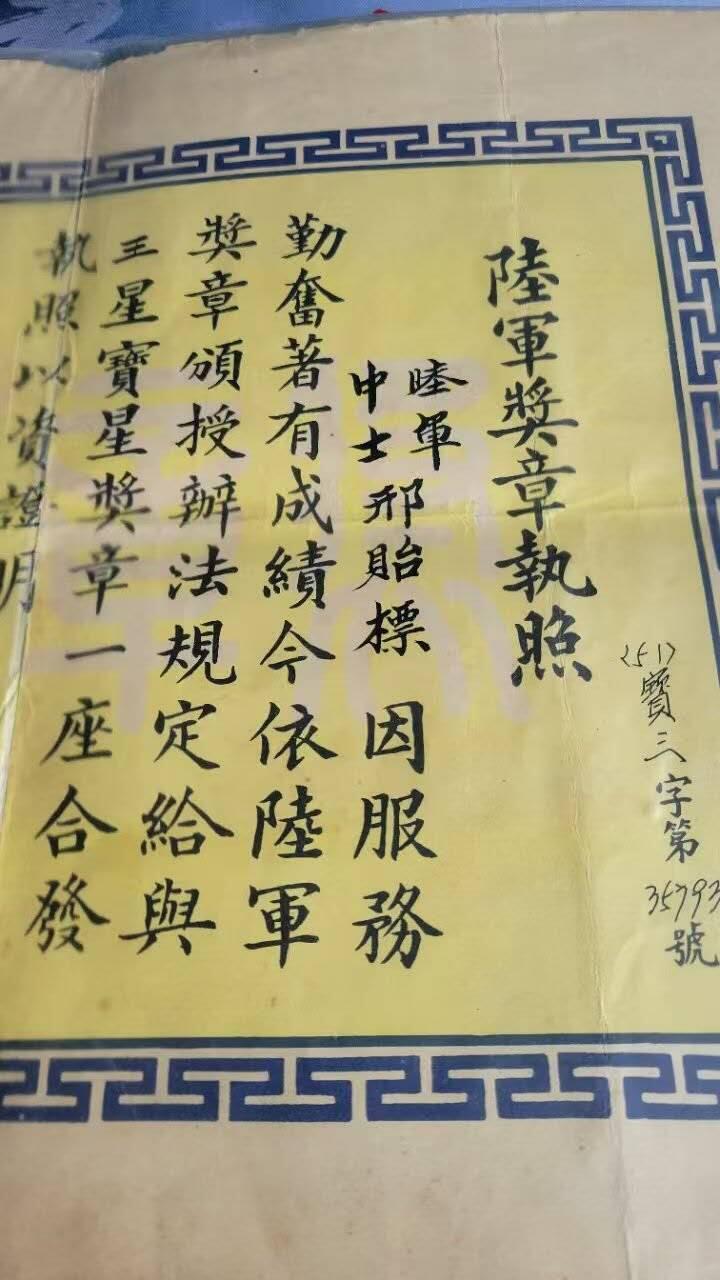 〈51〉寶三字第35793號
陸軍獎章執照
陸軍
中士邢貽標 因服務
勤奮著有成績今依陸軍
獎章頒授辦法規定給與
王星寶星獎章一座合發
執照以資證明